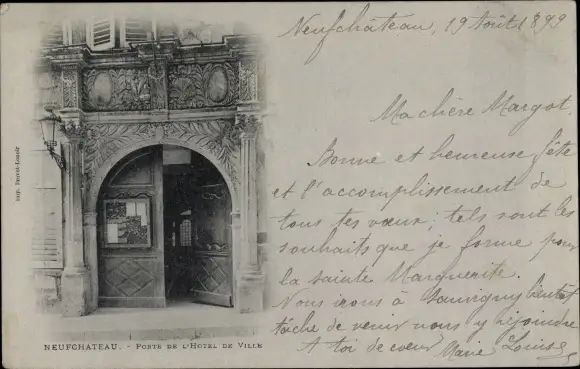 Neufchâteau, 19 Août 1899
Ma chère Margot.
Bonne et heureuse fête
et l'accomplissement de
tous tes vœux; tels sont les
souhaits que je forme pour
la sainte Marguerite.
Nous irons à Sauvigny bientôt
tâche de venir nous y rejoindre
A toi de cœur Marie Louise
NEUFCHATEAU. - PORTE DE L'HOTEL DE VILLE
Imp.